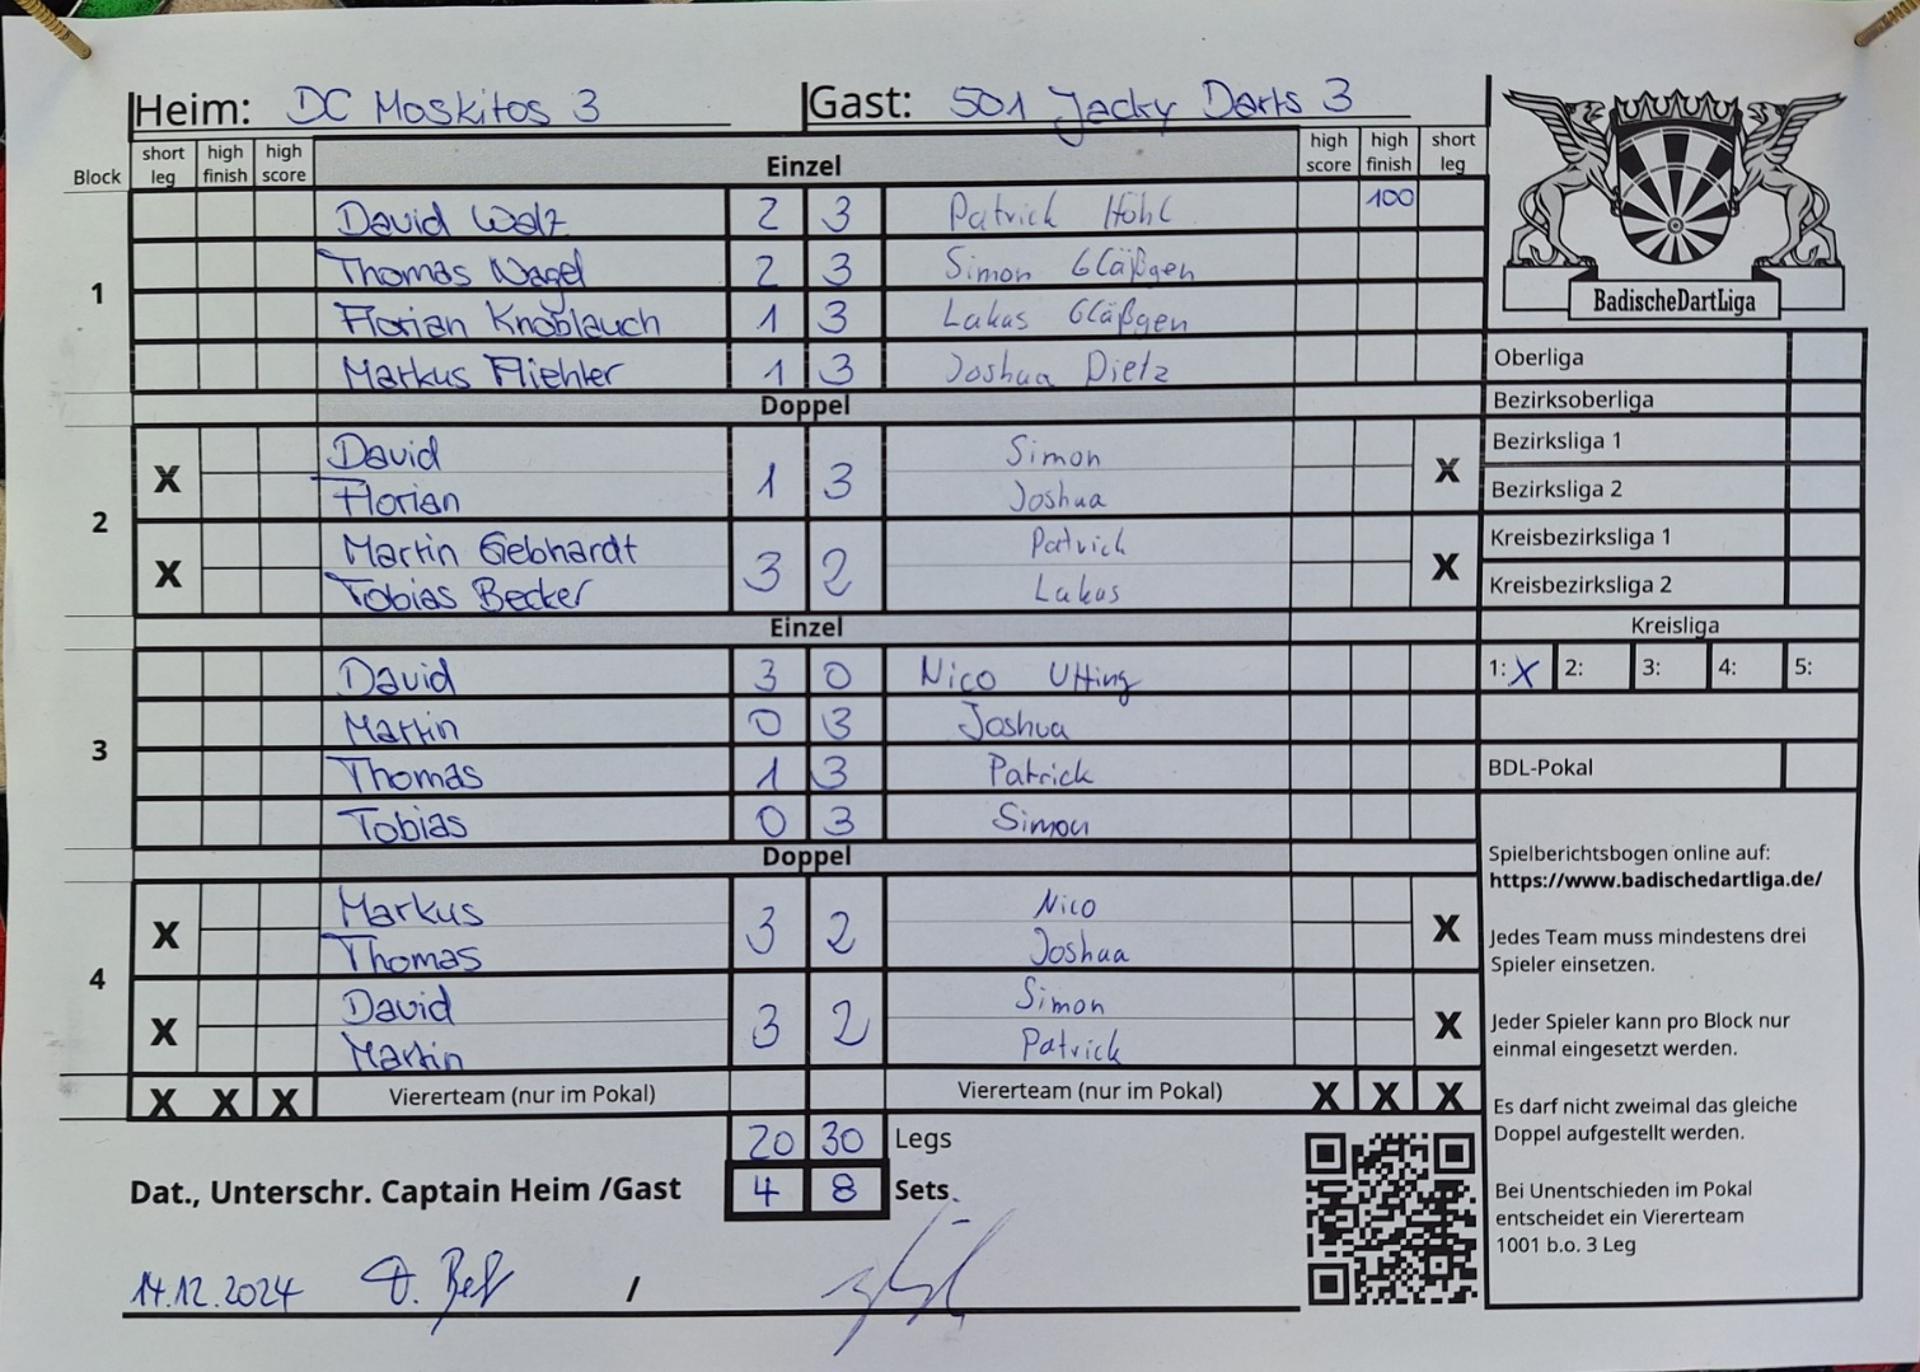 Heim: DC Moskitos 3 Gast: 501 Jacky Darts 3
Block short leg high finish high score Einzel high score high finish short leg
1
David Walz 2 3 Patrick Höhl 100
Thomas Nagel 2 3 Simon Gläßgen
Florian Knoblauch 1 3 Lukas Gläßgen
Markus 1 3 Joshua Dietz
Doppel
2
X David 1 3 Simon X
Florian Joshua
X Martin Gebhardt 3 2 Patrick X
Tobias Becker Lukas
Einzel
3
David 3 0 Nico Utting
Martin 0 3 Joshua
Thomas 1 3 Patrick
Tobias 0 3 Simon
Doppel
4
X Markus 3 2 Nico X
Thomas Joshua
X David 3 2 Simon X
Martin Patrick
X X X Viererteam (nur im Pokal) Viererteam (nur im Pokal) X X X
20 30 Legs
Dat., Unterschr. Captain Heim /Gast 4 8 Sets
14.12.2024 /
BadischeDartLiga
Oberliga
Bezirksoberliga
Bezirksliga 1
Bezirksliga 2
Kreisbezirksliga 1
Kreisbezirksliga 2
Kreisliga
1: X 2: 3: 4: 5:
BDL-Pokal
Spielberichtsbogen online auf:
https://www.badischedartliga.de/
Jedes Team muss mindestens drei
Spieler einsetzen.
Jeder Spieler kann pro Block nur
einmal eingesetzt werden.
Es darf nicht zweimal das gleiche
Doppel aufgestellt werden.
Bei Unentschieden im Pokal
entscheidet ein Viererteam
1001 b.o. 3 Leg